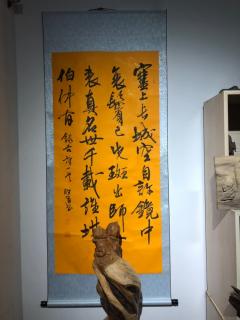 塞上長城空自許鏡中
衰鬢已先斑出師一
表真名世千載誰堪
伯仲間